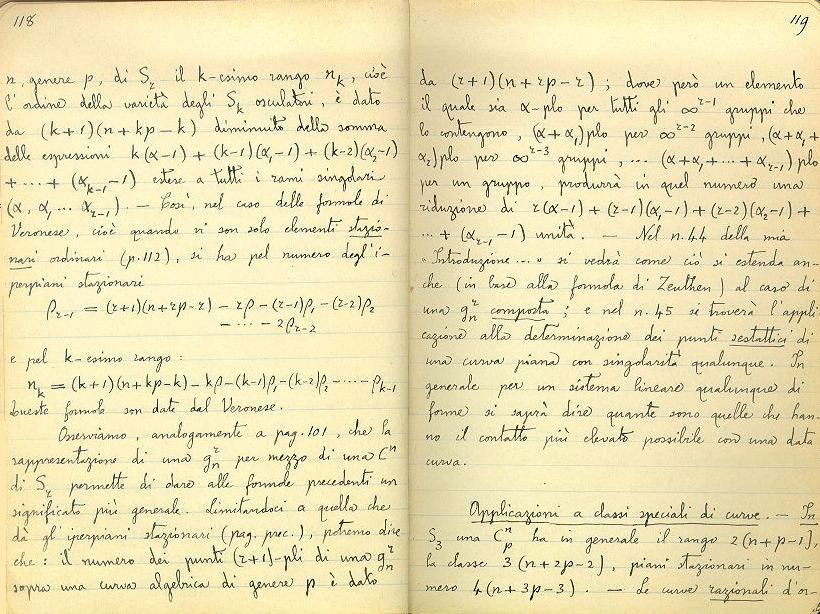 118
n, genere p, di Sr il k-esimo rango nk, cioè
l'ordine della varietà degli Sk osculatori, è dato
da (k+1)(n+kp-k) diminuito della somma
delle espressioni k(α-1) + (k-1)(α1-1) + (k-2)(α2-1)
+ ... + (αk-1-1) estese a tutti i rami singolari
(α, α1 ... αr-1). — Così, nel caso delle formole di
Veronese, cioè quando vi son solo elementi stazio-
nari ordinari (p. 112), si ha pel numero degl'i-
perpiani stazionari
ρr-1 = (r+1)(n+rp-r) - rρ - (r-1)ρ1 - (r-2)ρ2
- ... - 2ρr-2
e pel k-esimo rango:
nk = (k+1)(n+kp-k) - kρ - (k-1)ρ1 - (k-2)ρ2 - ... - ρk-1
Queste formole son date dal Veronese.
Osserviamo, analogamente a pag. 101, che la
rappresentazione di una grn per mezzo di una Cn
di Sr permette di dare alle formole precedenti un
significato più generale. Limitandoci a quella che
dà gl'iperpiani stazionari (pag. prec.), potremo dire
che: il numero dei punti (r+1)-pli di una grn
sopra una curva algebrica di genere p è dato
119
da (r+1)(n+rp-r); dove però un elemento
il quale sia α-plo per tutti gli ∞r-1 gruppi che
lo contengono, (α+α1)plo per ∞r-2 gruppi, (α+α1+
α2)plo per ∞r-3 gruppi, ... (α+α1+...+αr-1)plo
per un gruppo, produrrà in quel numero una
riduzione di r(α-1) + (r-1)(α1-1) + (r-2)(α2-1) +
... + (αr-1-1) unità. — Nel n. 44 della mia
«Introduzione...» si vedrà come ciò si estenda an-
che (in base alla formola di Zeuthen) al caso di
una grn composta; e nel n. 45 si troverà l'appli-
cazione alla determinazione dei punti sestattici di
una curva piana con singolarità qualunque. In
generale per un sistema lineare qualunque di
forme si saprà dire quante sono quelle che han-
no il contatto più elevato possibile con una data
curva.
Applicazioni a classi speciali di curve. — In
S3 una Cnp ha in generale il rango 2(n+p-1),
la classe 3(n+2p-2), piani stazionari in nu-
mero 4(n+3p-3). — Le curve razionali d'or-